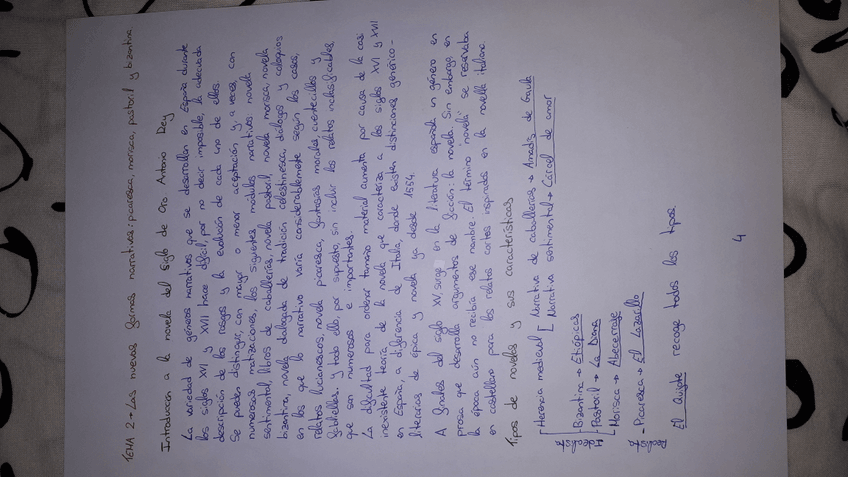 TEMA 2 - Las nuevas formas narrativas: picaresca, morisca, pastoril y bizantina
Introducción a la novela del siglo de Oro Antonio Rey
La variedad de géneros narrativos que se desarrollan en España durante
los siglos XVI y XVII hace difícil, por no decir imposible, la adecuada
descripción de los rasgos y la evolución de cada uno de ellos.
Se pueden distinguir, con mayor o menor aceptación y, a veces, con
numerosas matizaciones, los siguientes módulos narrativos: novela
sentimental, libros de caballerías, novela pastoril, novela morisca, novela
bizantina, novela dialogada de tradición celestinesca, diálogos y coloquios
en los que lo narrativo varía considerablemente según los casos,
relatos lucianescos, novela picaresca, fantasías morales, cuentecillos y
fabliellas. Y todo ello, por supuesto, sin incluir los relatos inclasificables
que son numerosos e importantes.
La dificultad para ordenar tamaño material aumenta por causa de la casi
inexistente teoría de la novela que caracteriza a los siglos XVI y XVII
en España, a diferencia de Italia, donde existen distinciones genérico-
literarias de épica y novela ya desde 1554.
A finales del siglo XV, surge en la literatura española un género en
prosa que desarrolla argumentos de ficción: la novela. Sin embargo en
la época aún no recibía ese nombre. El término novela se reservaba
en castellano para los relatos cortos inspirados en la novelle italiana.
Tipos de novelas y sus características
Herencia medieval [ Narrativa de caballerías → Amadís de Gaula
Narrativa sentimental → Cárcel de amor
Bizantina → Etiópicas
Pastoril → La Diana
Morisca → Abencerraje
- Picaresca → El Lazarillo
El Quijote recoge todos los tipos
4